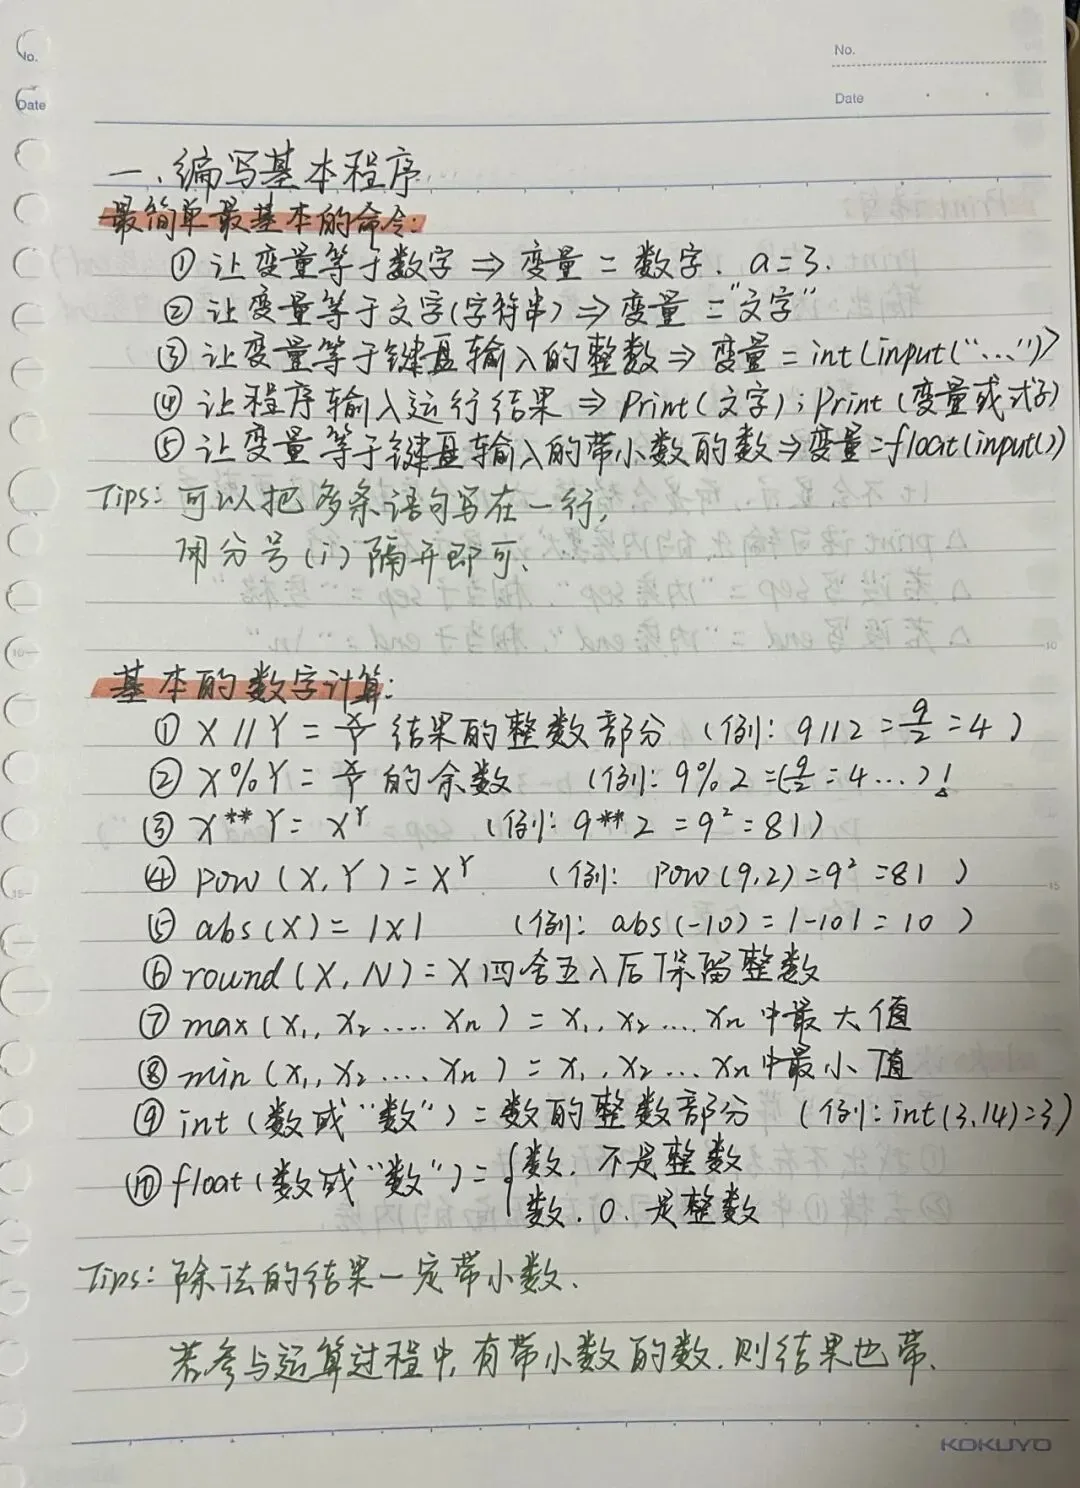 No.
Date
No.
Date
一、编写基本程序
最简单最基本的命令:
① 让变量等于数字 ⇒ 变量 = 数字. a=3.
② 让变量等于文字(字符串) ⇒ 变量 = "文字"
③ 让变量等于键盘输入的整数 ⇒ 变量 = int(input("..."))
④ 让程序输入运行结果 ⇒ Print(文字); Print(变量或式子)
⑤ 让变量等于键盘输入的带小数的数 ⇒ 变量=float(input())
Tips: 可以把多条语句写在一行,
用分号(;)隔开即可.
基本的数字计算:
① X//Y = X/Y 结果的整数部分 (例: 9//2 = 9/2 = 4)
② X%Y = X/Y 的余数 (例: 9%2 =(9/2 = 4...)1
③ X**Y = X^Y (例: 9**2 = 9² = 81)
④ pow(X,Y) = X^Y (例: pow(9,2)=9²=81)
⑤ abs(X) = |X| (例: abs(-10) = |-10| = 10)
⑥ round(X,N) = X四舍五入后保留整数
⑦ max(X₁,X₂....Xn) = X₁,X₂...Xn中最大值
⑧ min(X₁,X₂....Xn) = X₁,X₂...Xn中最小值
⑨ int(数或"数") = 数的整数部分 (例:int(3.14)=3)
⑩ float(数或"数") = { 数. 不是整数
数.0. 是整数
Tips: 除法的结果一定带小数.
若参与运算过程中,有带小数的数.则结果也带.
KOKUYO